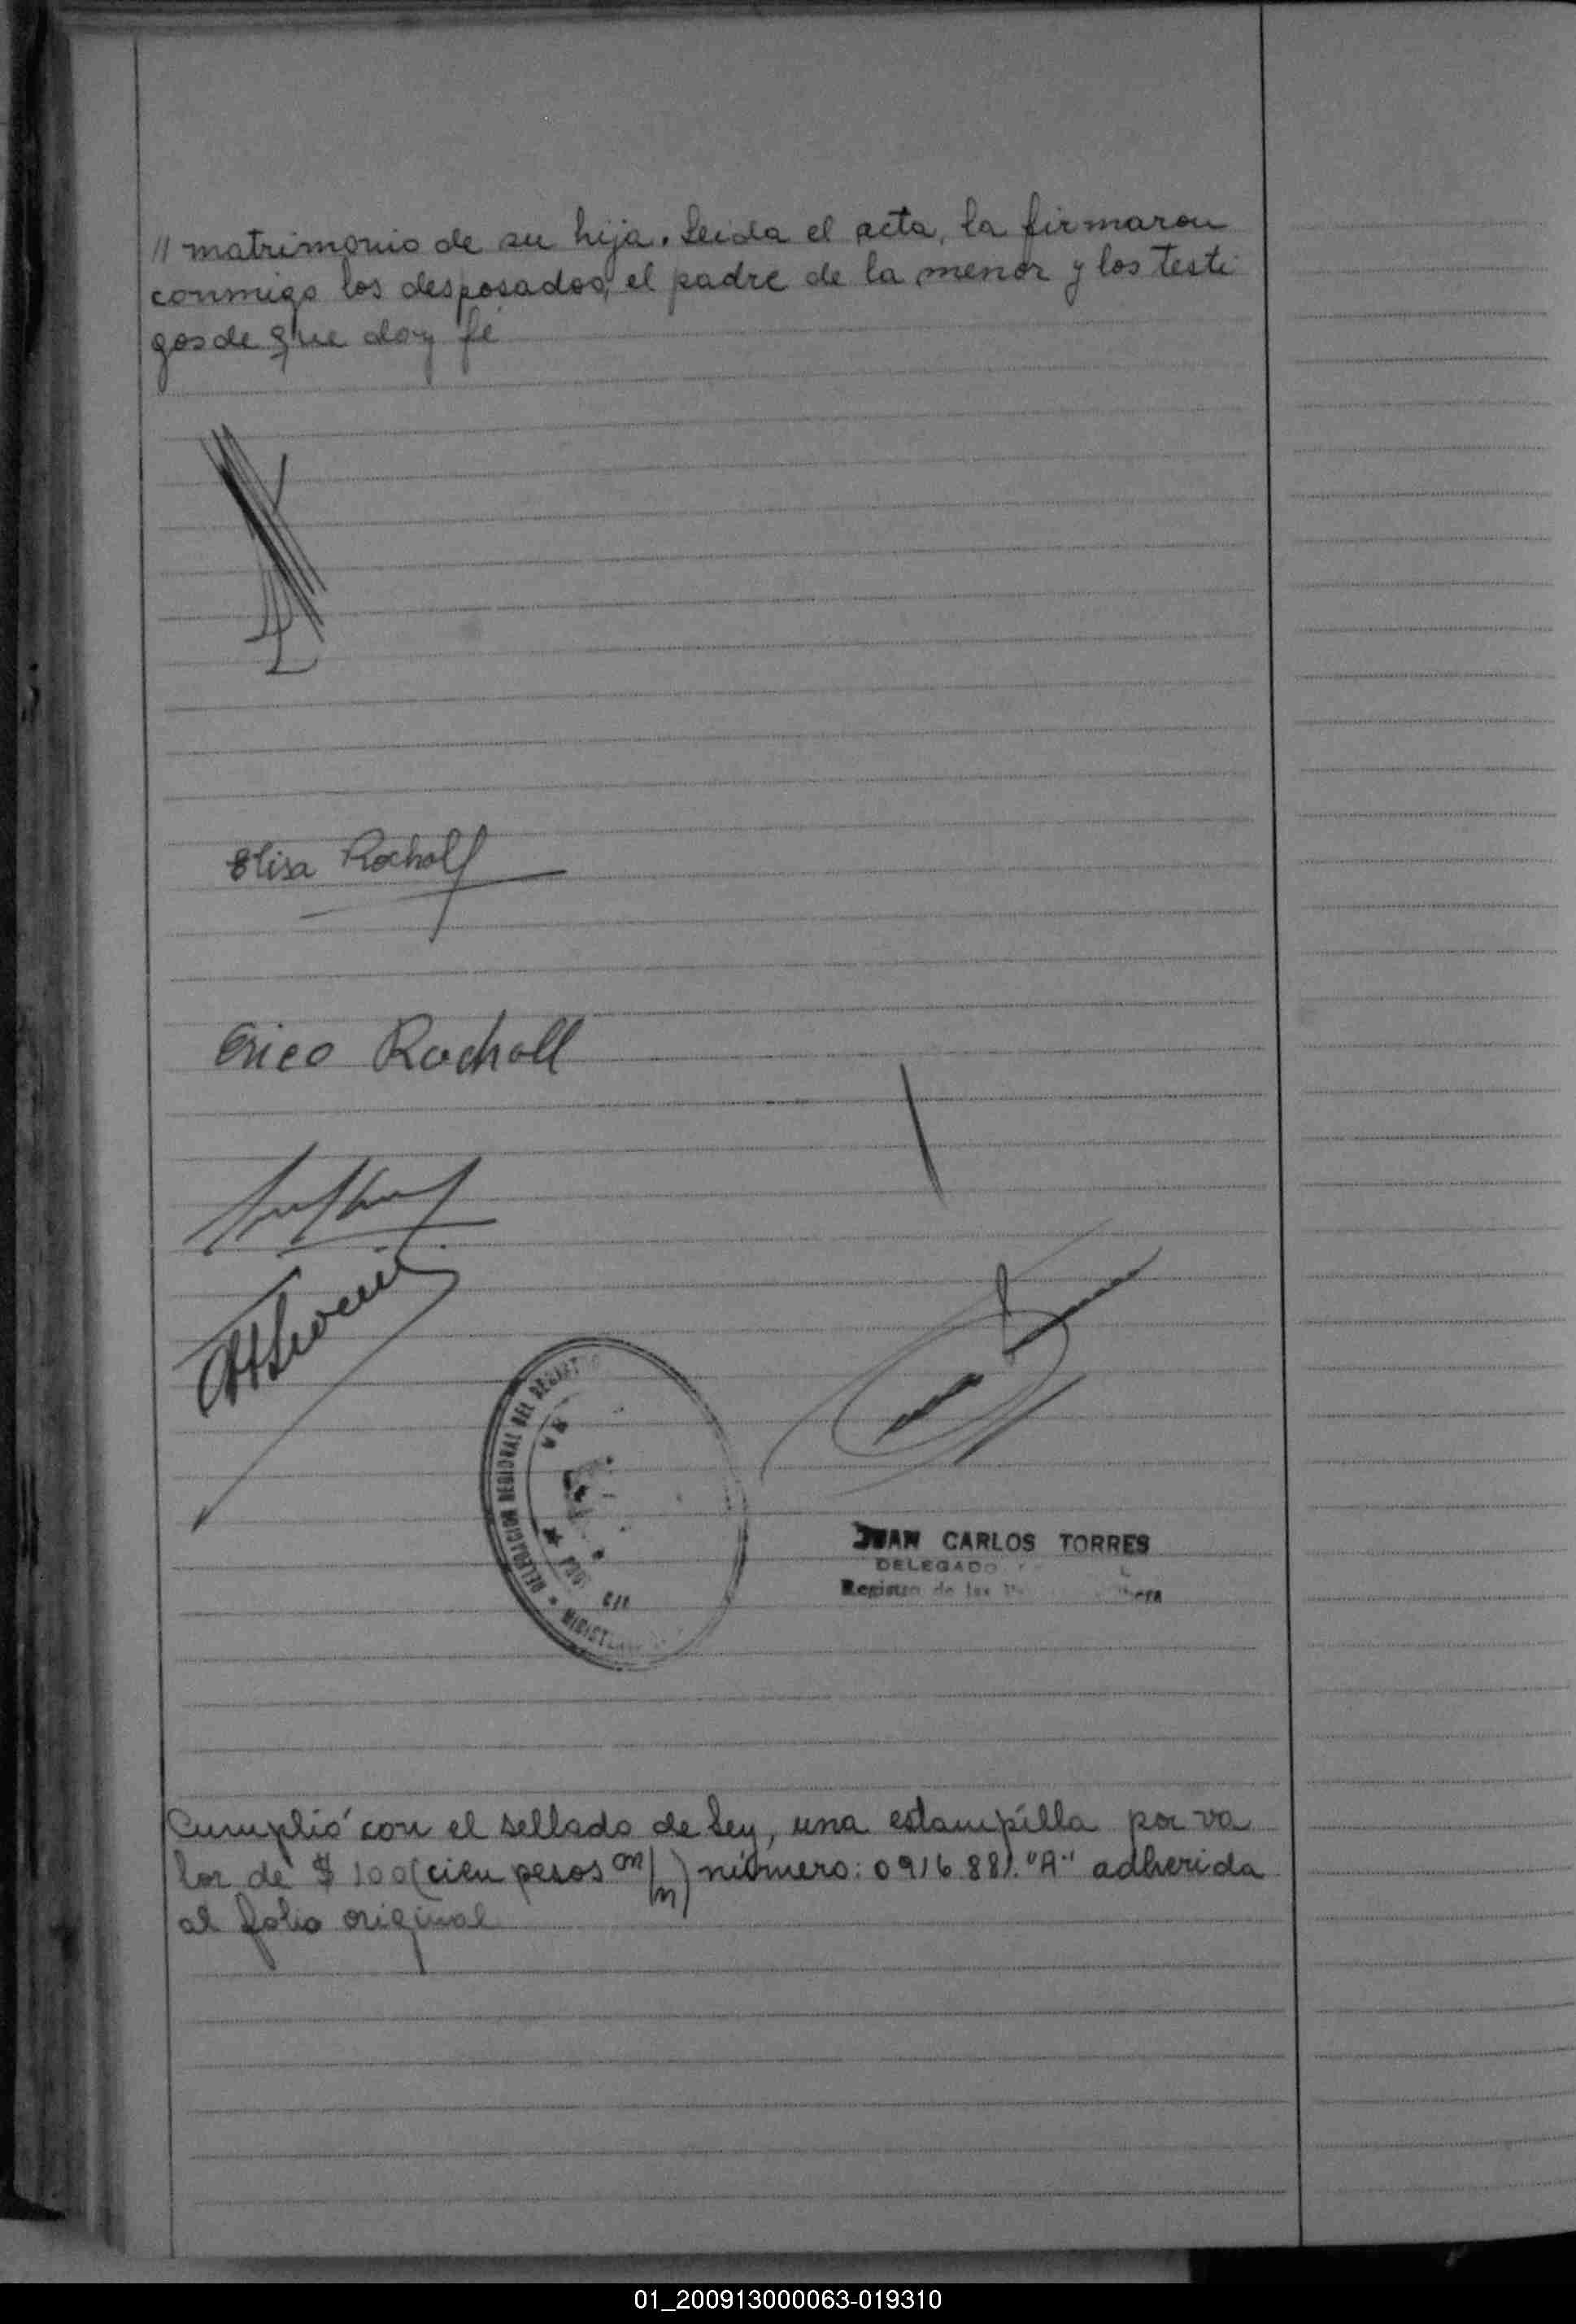 // matrimonio de su hija. Leida el acta, la firmaron
conmigo los desposados, el padre de la menor y los testi
gos de que doy fé
Elisa Rocholl
Erico Rocholl
DELEGACION REGIONAL DEL REGISTRO
JUAN CARLOS TORRES
DELEGADO
Registro de las
Cumplió con el sellado de Ley, una estampilla por va
lor de $ 100 (cien pesos m/n) número: 091688). "A" adherida
al folio original
01_200913000063-019310